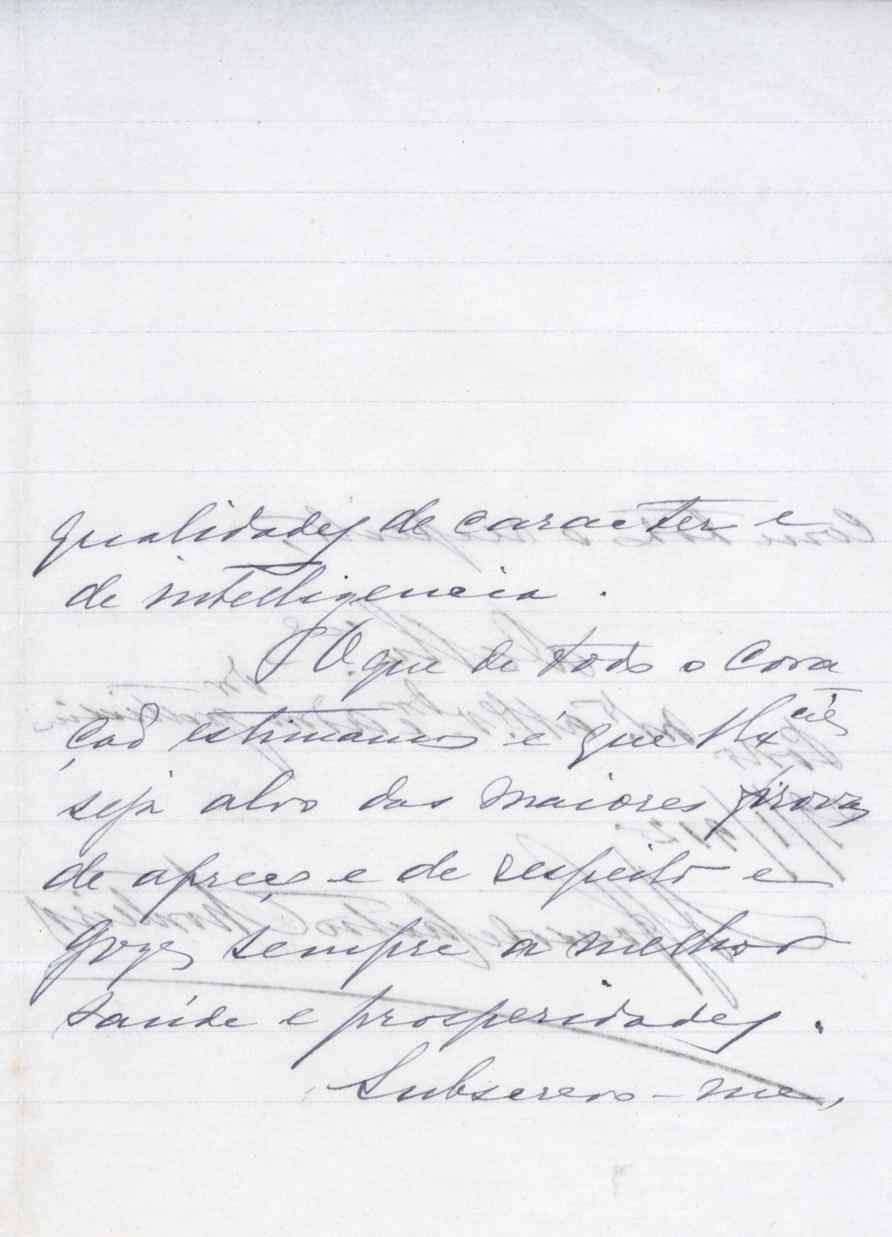 qualidades de caracter e
de intelligencia.
O que de todo o cora
ção estimamos é que
seja alvo das maiores provas
de apreço e de respeito e
goze sempre a melhor
saúde e prosperidades.
Subscrevo-me,